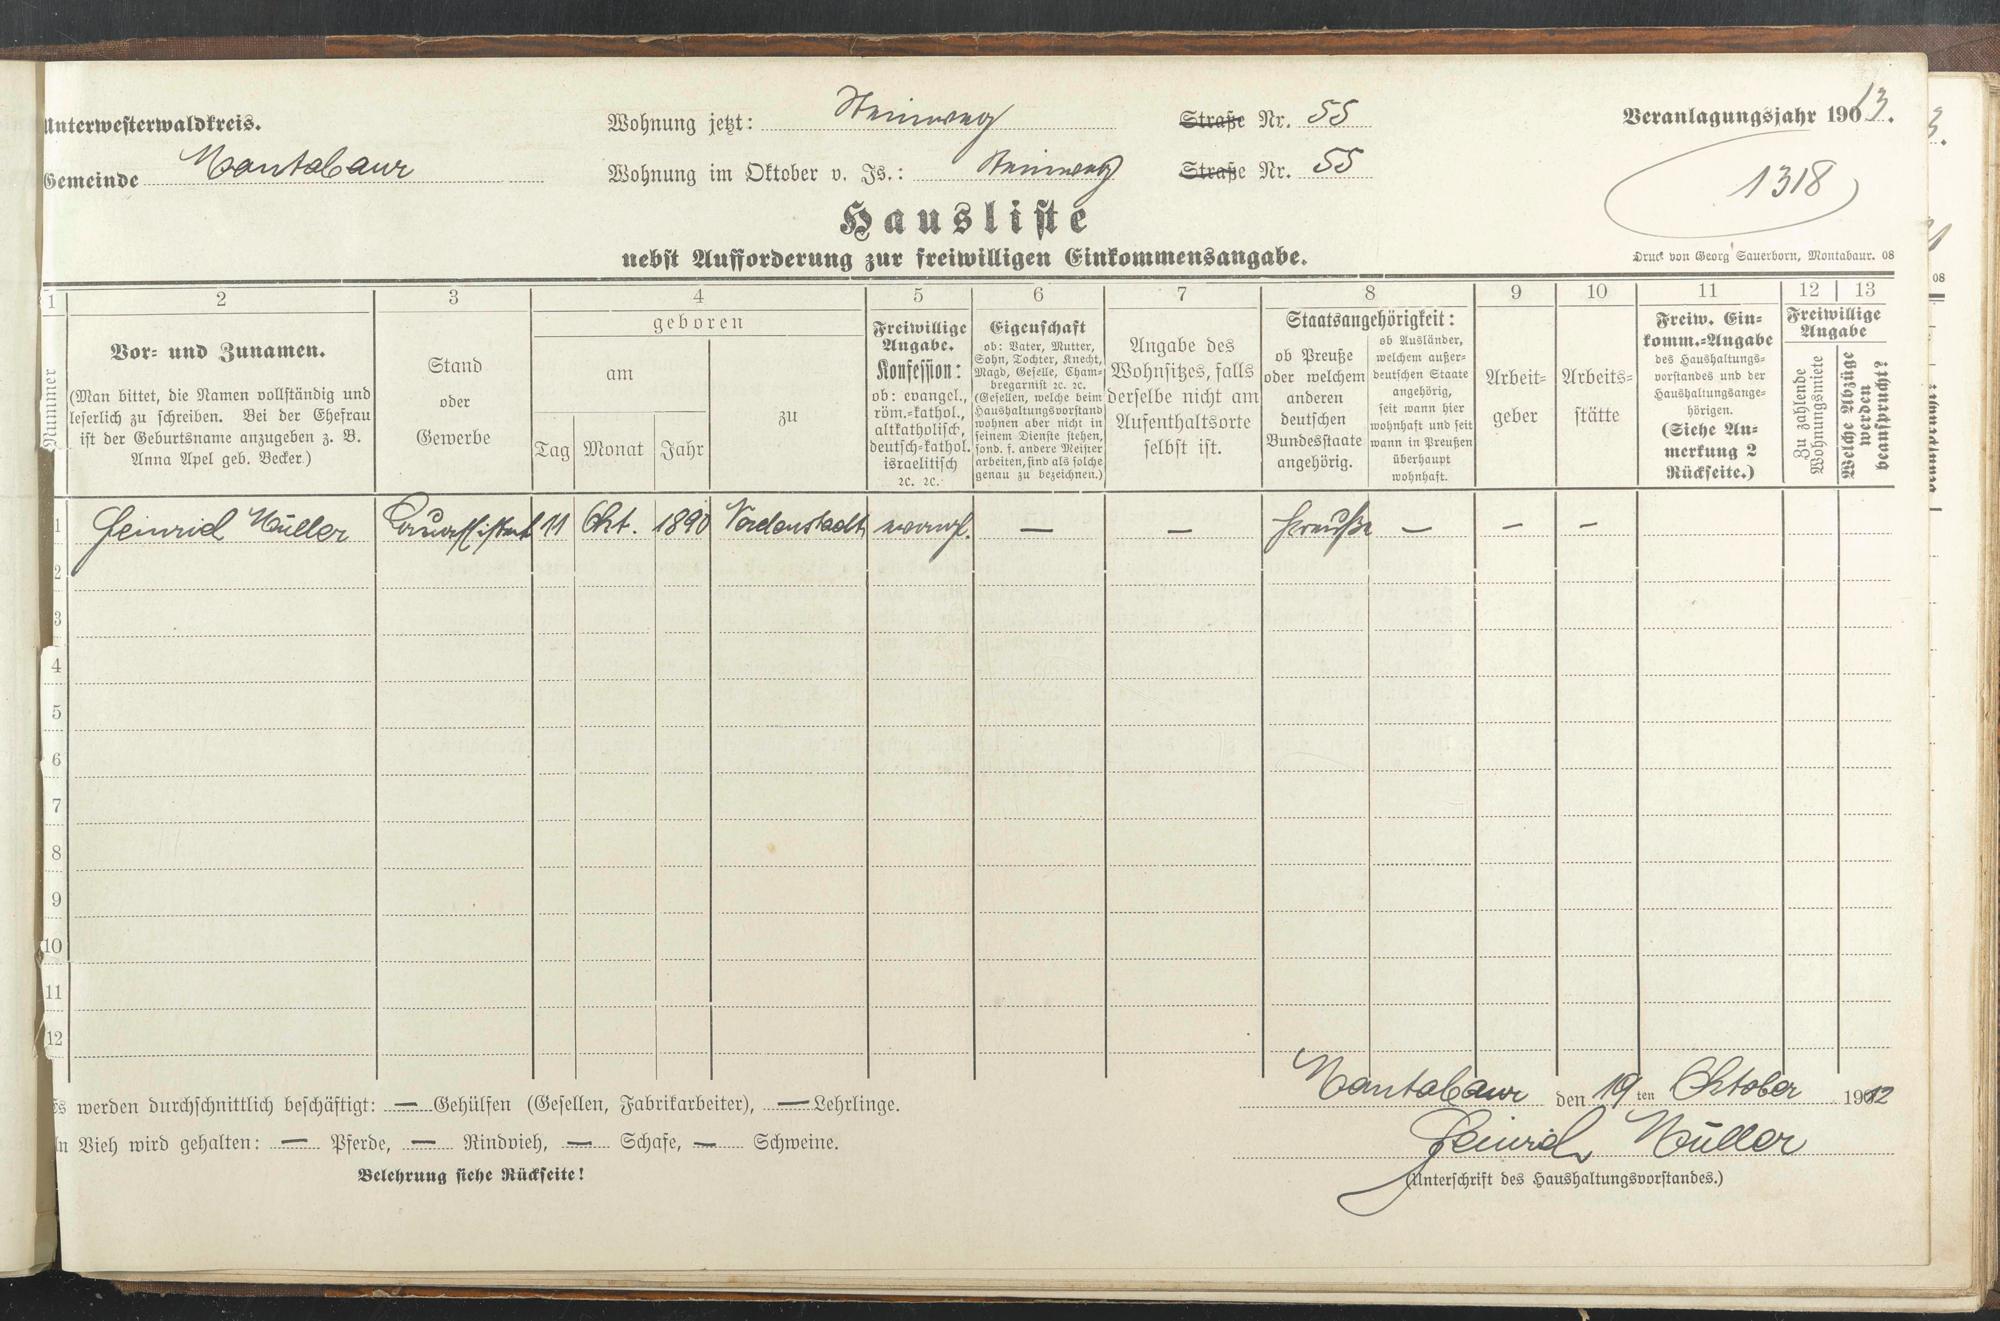 Unterwesterwaldkreis.
Gemeinde Montabaur
Wohnung jetzt: Steinweg Straße Nr. 55
Wohnung im Oktober v. Js.: Steinweg Straße Nr. 55
Veranlagungsjahr 1913.
1318
Hausliste
nebst Aufforderung zur freiwilligen Einkommensangabe.
Druck von Georg Sauerborn, Montabaur. 08
1 2 3 4 5 6 7 8 9 10 11 12 13
Nummer
Vor- und Zunamen.
(Man bittet, die Namen vollständig und
leserlich zu schreiben. Bei der Ehefrau
ist der Geburtsname anzugeben z. B.
Anna Apel geb. Becker.)
Stand
oder
Gewerbe
geboren
am
Tag Monat Jahr
zu
Freiwillige
Angabe.
Konfession:
ob: evangel.,
röm.-kathol.,
altkatholisch,
deutsch-kathol.
israelitisch
2c. 2c.
Eigenschaft
ob: Vater, Mutter,
Sohn, Tochter, Knecht,
Magd, Geselle, Cham-
bregarnist 2c. 2c.
(Gesellen, welche beim
Haushaltungsvorstand
wohnen aber nicht in
seinem Dienste stehen,
sond. f. andere Meister
arbeiten, sind als solche
genau zu bezeichnen.)
Angabe des
Wohnsitzes, falls
derselbe nicht am
Aufenthaltsorte
selbst ist.
Staatsangehörigkeit:
ob Preuße
oder welchem
anderen
deutschen
Bundesstaate
angehörig.
ob Ausländer,
welchem außer-
deutschen Staate
angehörig,
seit wann hier
wohnhaft und seit
wann in Preußen
überhaupt
wohnhaft.
Arbeit-
geber
Arbeits-
stätte
Freiw. Ein-
komm.-Angabe
des Haushaltungs-
vorstandes und der
Haushaltungsange-
hörigen.
(Siehe An-
merkung 2
Rückseite.)
Freiwillige
Angabe
Zu zahlende
Wohnungsmiete
Welche Abzüge
werden
beansprucht?
1 Heinrich Müller 11 Okt. 1890 Nordenstadt evangl. — — Preuße — — —
2
3
4
5
6
7
8
9
10
11
12
Es werden durchschnittlich beschäftigt: — Gehülfen (Gesellen, Fabrikarbeiter), — Lehrlinge.
An Vieh wird gehalten: — Pferde, — Rindvieh, — Schafe, — Schweine.
Belehrung siehe Rückseite!
Montabaur den 19 ten Oktober 1912
Heinrich Müller
(Unterschrift des Haushaltungsvorstandes.)